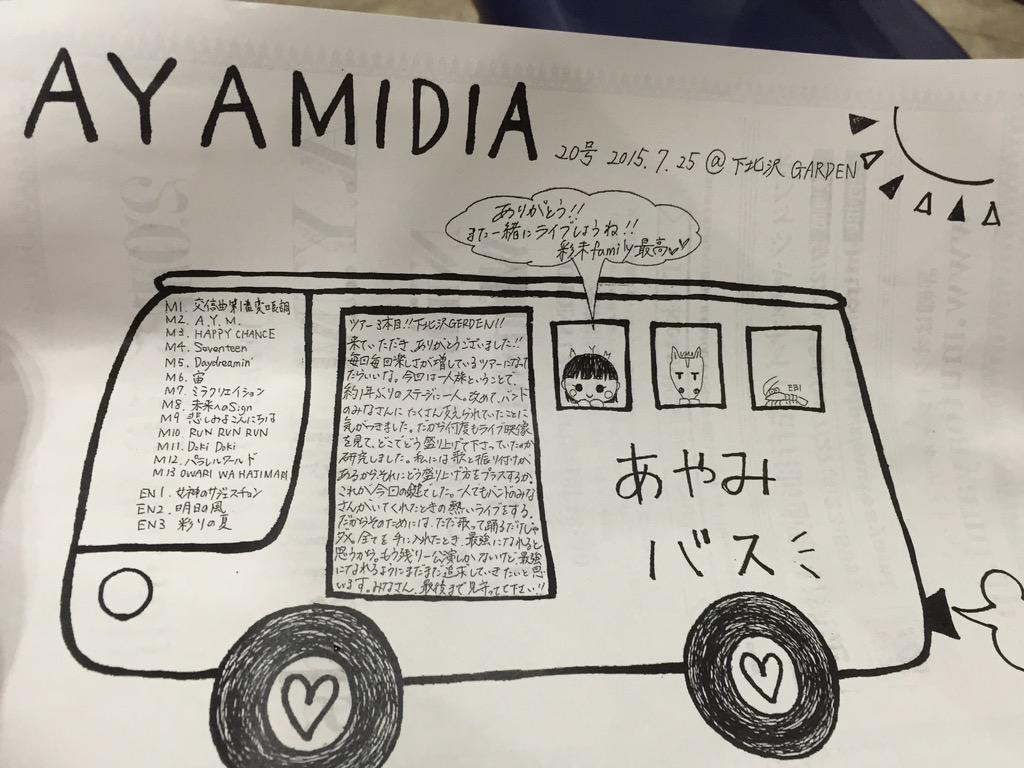 AYAMIDIA
20号 2015.7.25 @ 下北沢 GARDEN
ありがとう!!
また一緒にライブしようね!!
彩未family最高
M1. 交信曲第1番変ロ長調
M2. A.Y.M.
M3. HAPPY CHANCE
M4. Seventeen
M5. Daydreamin'
M6. 宙
M7. ミラクリエイション
M8. 未来へのSign
M9 悲しみよこんにちは
M10. RUN RUN RUN
M11. Doki Doki
M12. パラレルワールド
M13 OWARI WA HAJIMARI
EN1. 女神のサジェスチョン
EN2. 明日の風
EN3 彩りの夏
ツアー3本目!!下北沢GARDEN!!
来ていただき、ありがとうございました!!
毎回毎回楽しさが増しているツアーになって
たらいいな。今回は一人旅ということで、
約1年ぶりのステージ一人。改めて、バンド
のみなさんにたくさん支えられていたことに
気がつきました。だから何度もライブ映像
を見て、どこでどう盛り上げて下さっていたのか
研究しました。私には歌と振り付けが
あるからそれにどう盛り上げ方をプラスするか。
これが今回の鍵でした。一人でもバンドのみな
さんがいてくれたときの熱いライブをする。
だからそのためには、ただ歌って踊るだけじゃ
ダメ。全てを手に入れたとき、最強になれると
思うから。もう残り一公演しかないけど、最強
になれるようにまだまだ追求していきたいと思
います。みなさん、最後まで見守ってて下さい!!
AYM
EBI
あやみ
バス